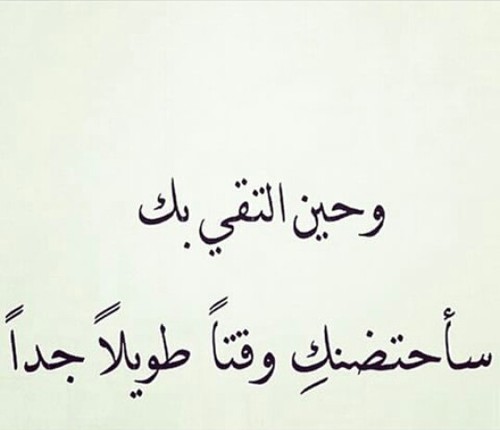 وحين التقي بك
سأحتضنكِ وقتاً طويلاً جداً